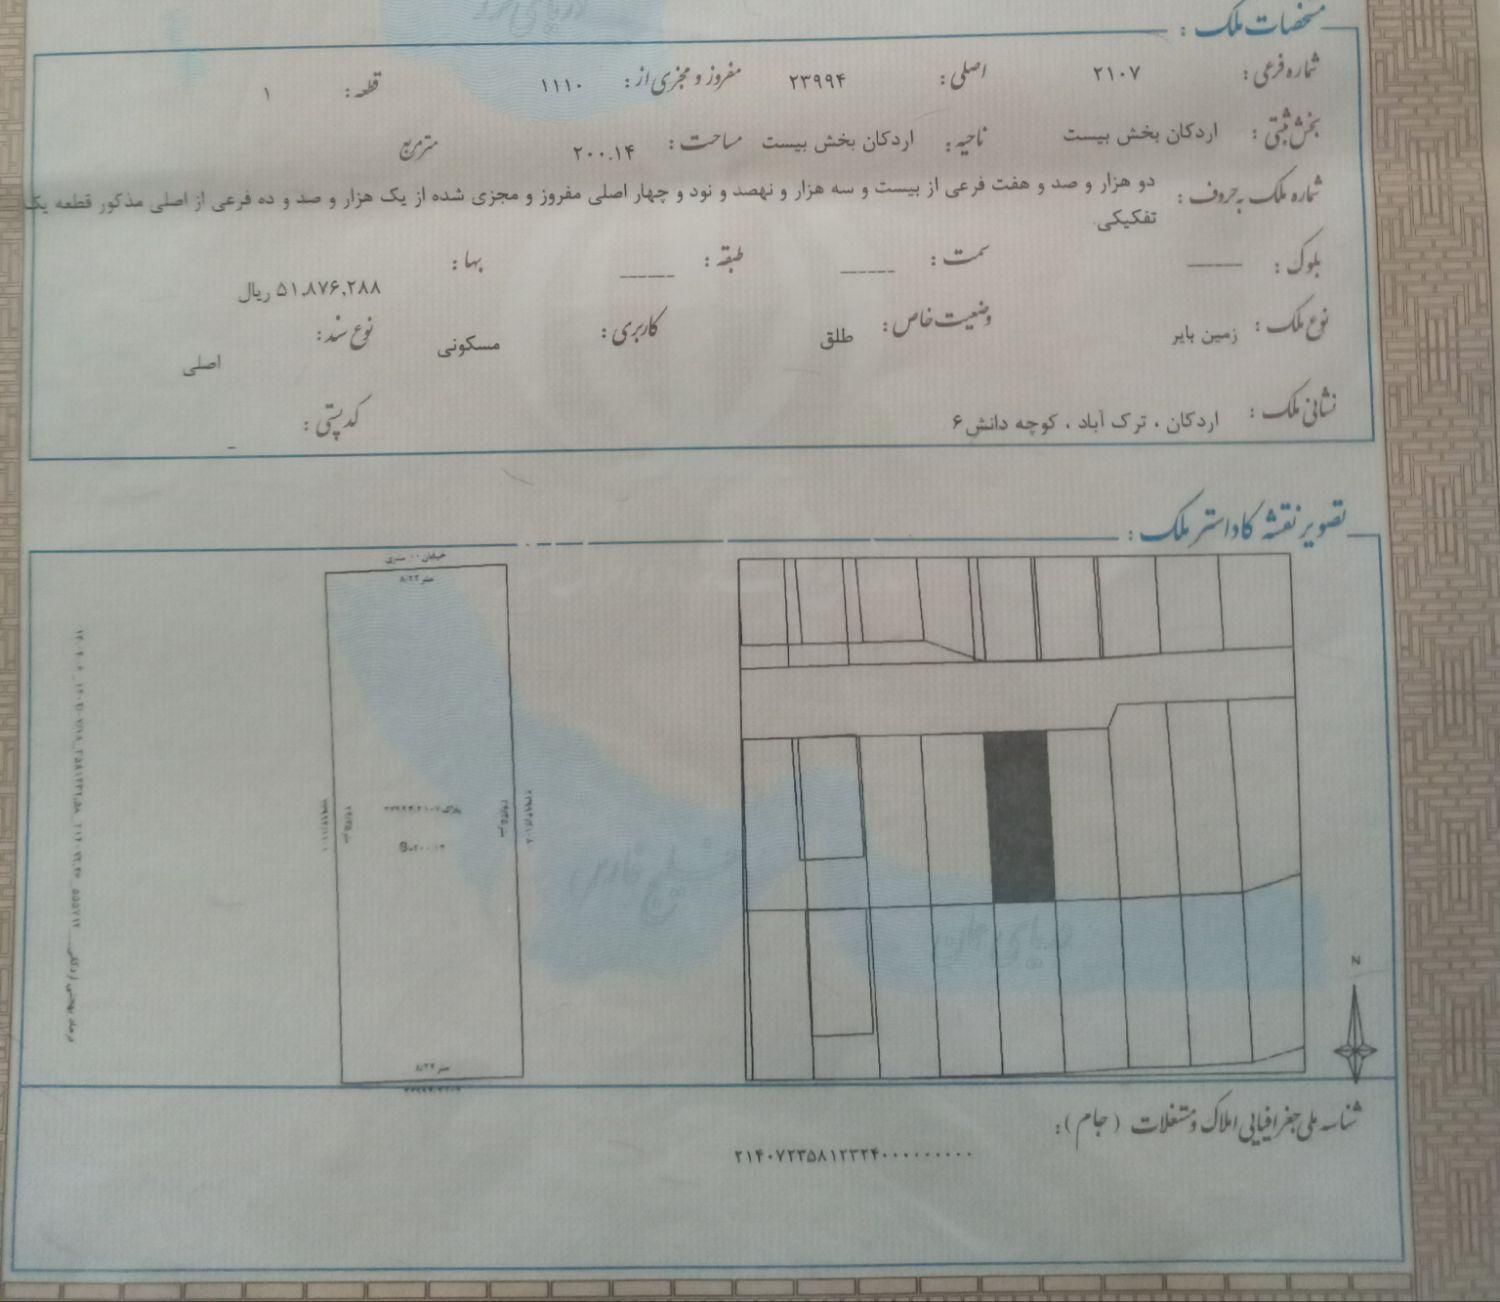 مشخصات ملک :
شماره فرعی : ۲۱۰۷ اصلی : ۲۳۹۹۴ مفروز و مجزی از : ۱۱۱۰ قطعه : ۱
بخش ثبتی : اردکان بخش بیست ناحیه : اردکان بخش بیست مساحت : ۲۰۰.۱۴ مترمربع
شماره ملک به حروف : دو هزار و صد و هفت فرعی از بیست و سه هزار و نهصد و نود و چهار اصلی مفروز و مجزی شده از یک هزار و صد و ده فرعی از اصلی مذکور قطعه یک
تفکیکی.
بلوک : ------ سمت : ------ طبقه : ------ بها : ۵۱,۸۷۶,۲۸۸ ریال
نوع ملک : زمین بایر وضعیت خاص : طلق کاربری : مسکونی نوع سند : اصلی
نشانی ملک : اردکان ، ترک آباد ، کوچه دانش۶ کد پستی : -
تصویر نقشه کاداستر ملک :
N
شناسه ملی جغرافیایی املاک و مستغلات (جام) :
۲۱۴۰۷۲۳۵۸۱۲۳۲۴۰۰۰۰۰۰۰۰۰۰